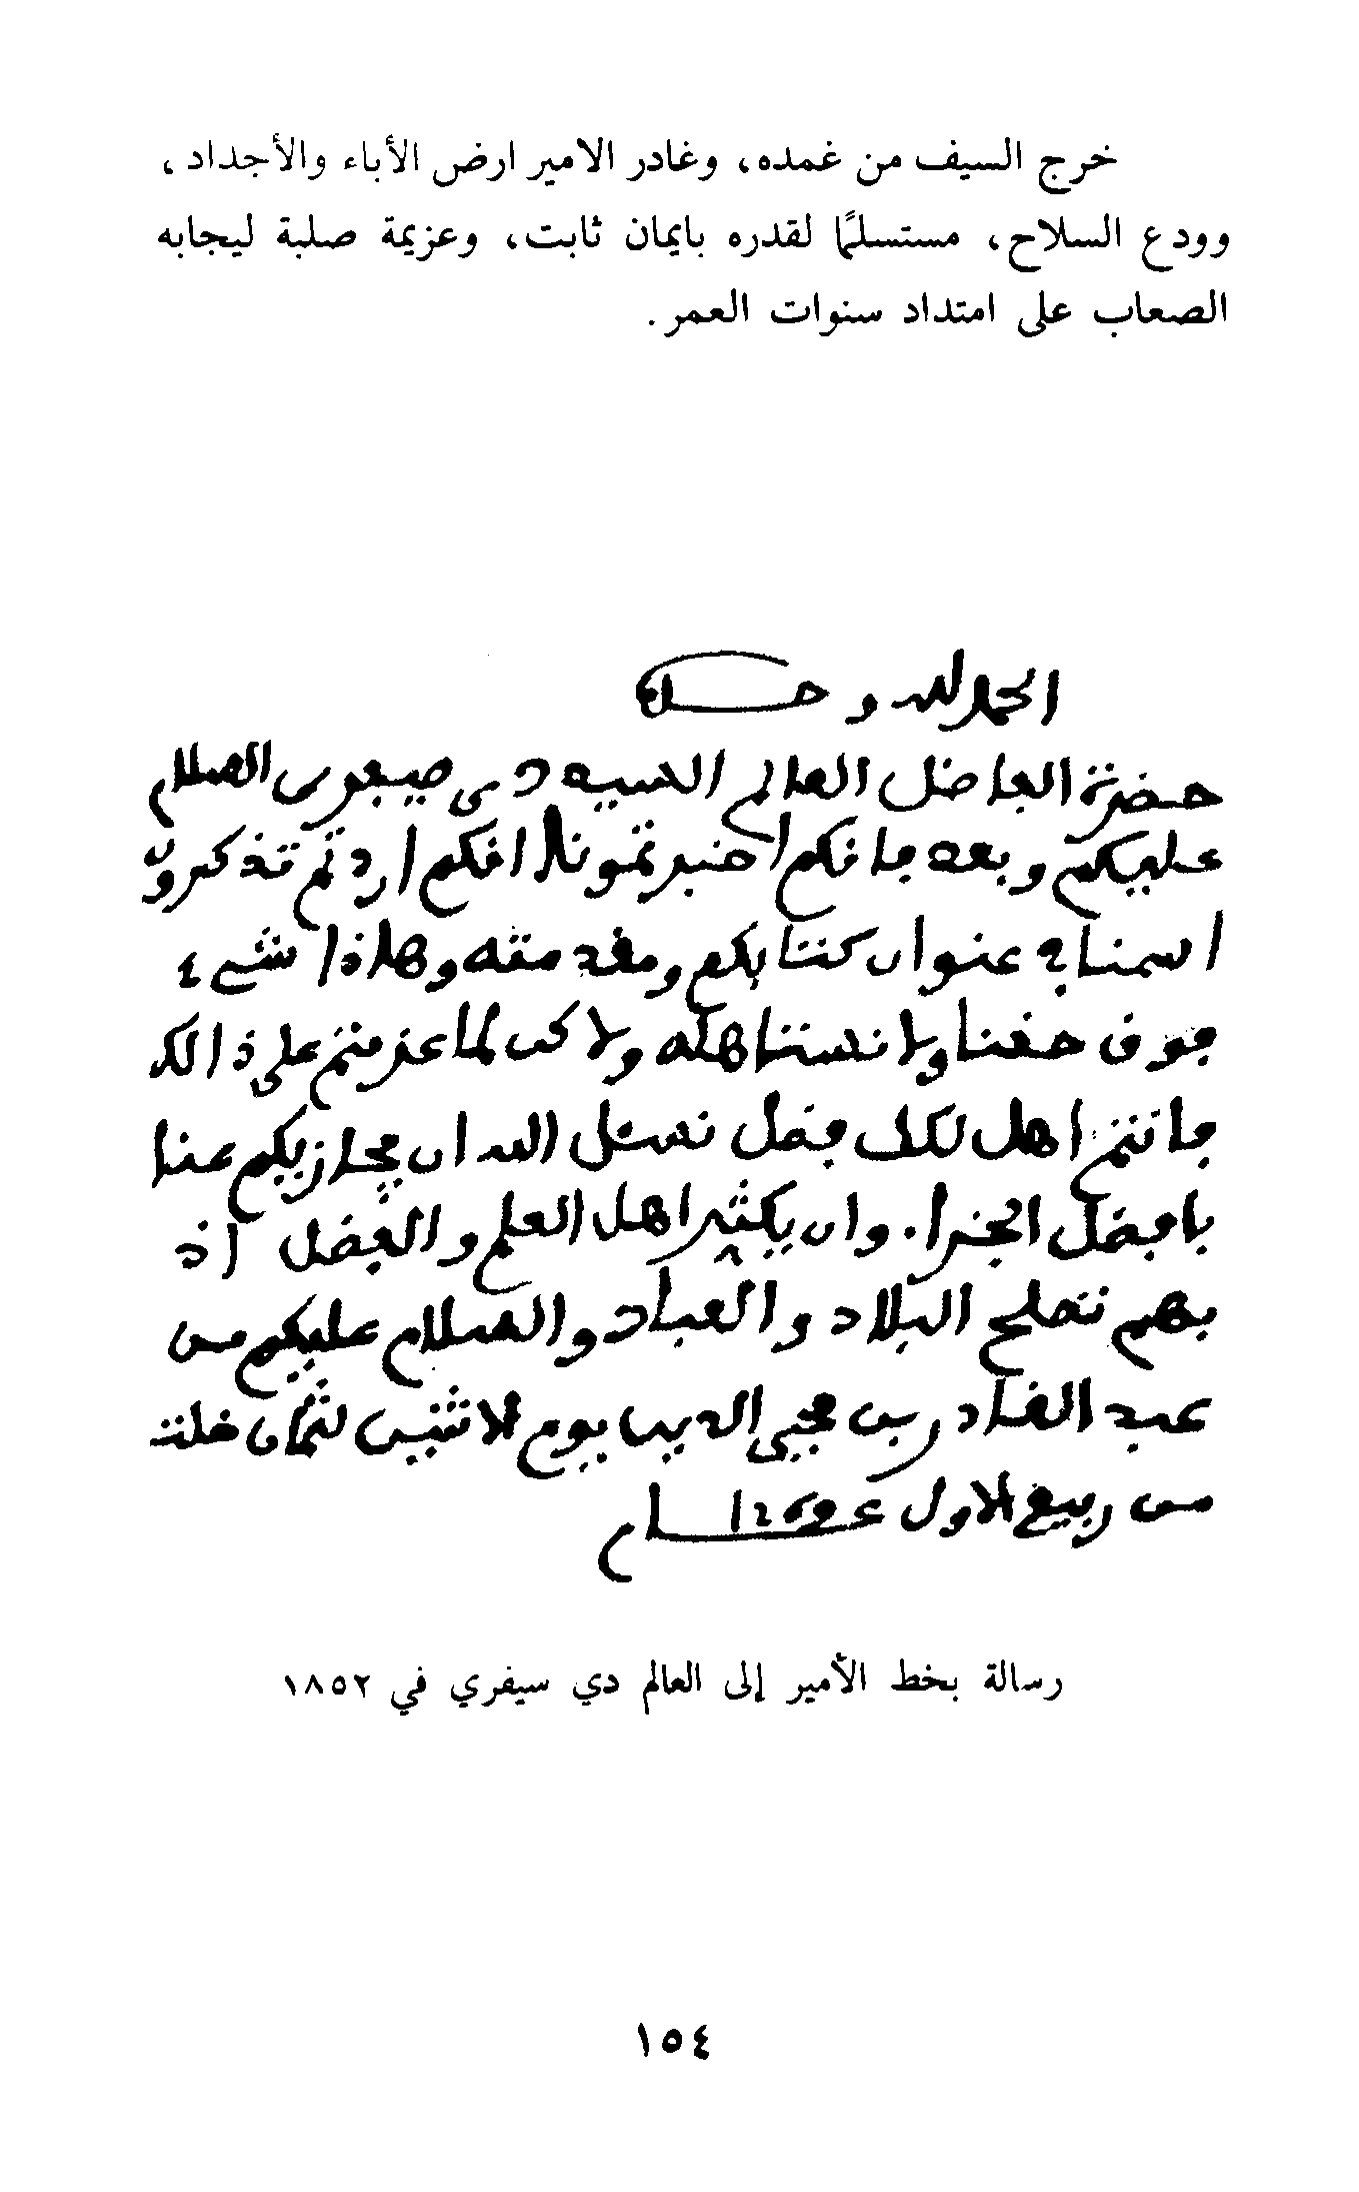 خرج السيف من غمده، وغادر الامير ارض الأباء والأجداد،
وودع السلاح، مستسلمًا لقدره بايمان ثابت، وعزيمة صلبة ليجابه
الصعاب على امتداد سنوات العمر.
الحمد لله وحده
حضرة الفاضل العالم السيد دى صيفرى السلام
عليكم وبعد فانكم اخبرتمونا انكم اردتم تذكرون
اسمنا في عنوان كتابكم ومقدمته وهاذا شيء
فوق حقنا ولا نستاهله ولاكن لما عزمتم على ذالك
فانتم اهل لكل فضل نسئل الله ان يجازيكم عنا
بافضل الجزاء. وان يكثر اهل العلم والفضل اذ
بهم تصلح البلاد والعباد والسلام عليكم من
عبد القادر بن محيي الدين يوم الاثنين لثمان خلت
من ربيع الاول عام
رسالة بخط الأمير إلى العالم دي سيفري في ١٨٥٢
١٥٤